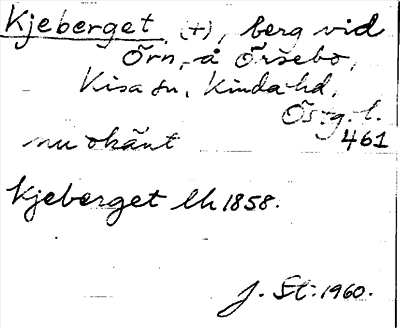 Kjeberget (+), berg vid
Örn, å Öršebo,
Kisa sn, Kinda hd,
Östg. l.
nu okänt 461
Kjeberget lh 1858.
J. St. 1960.